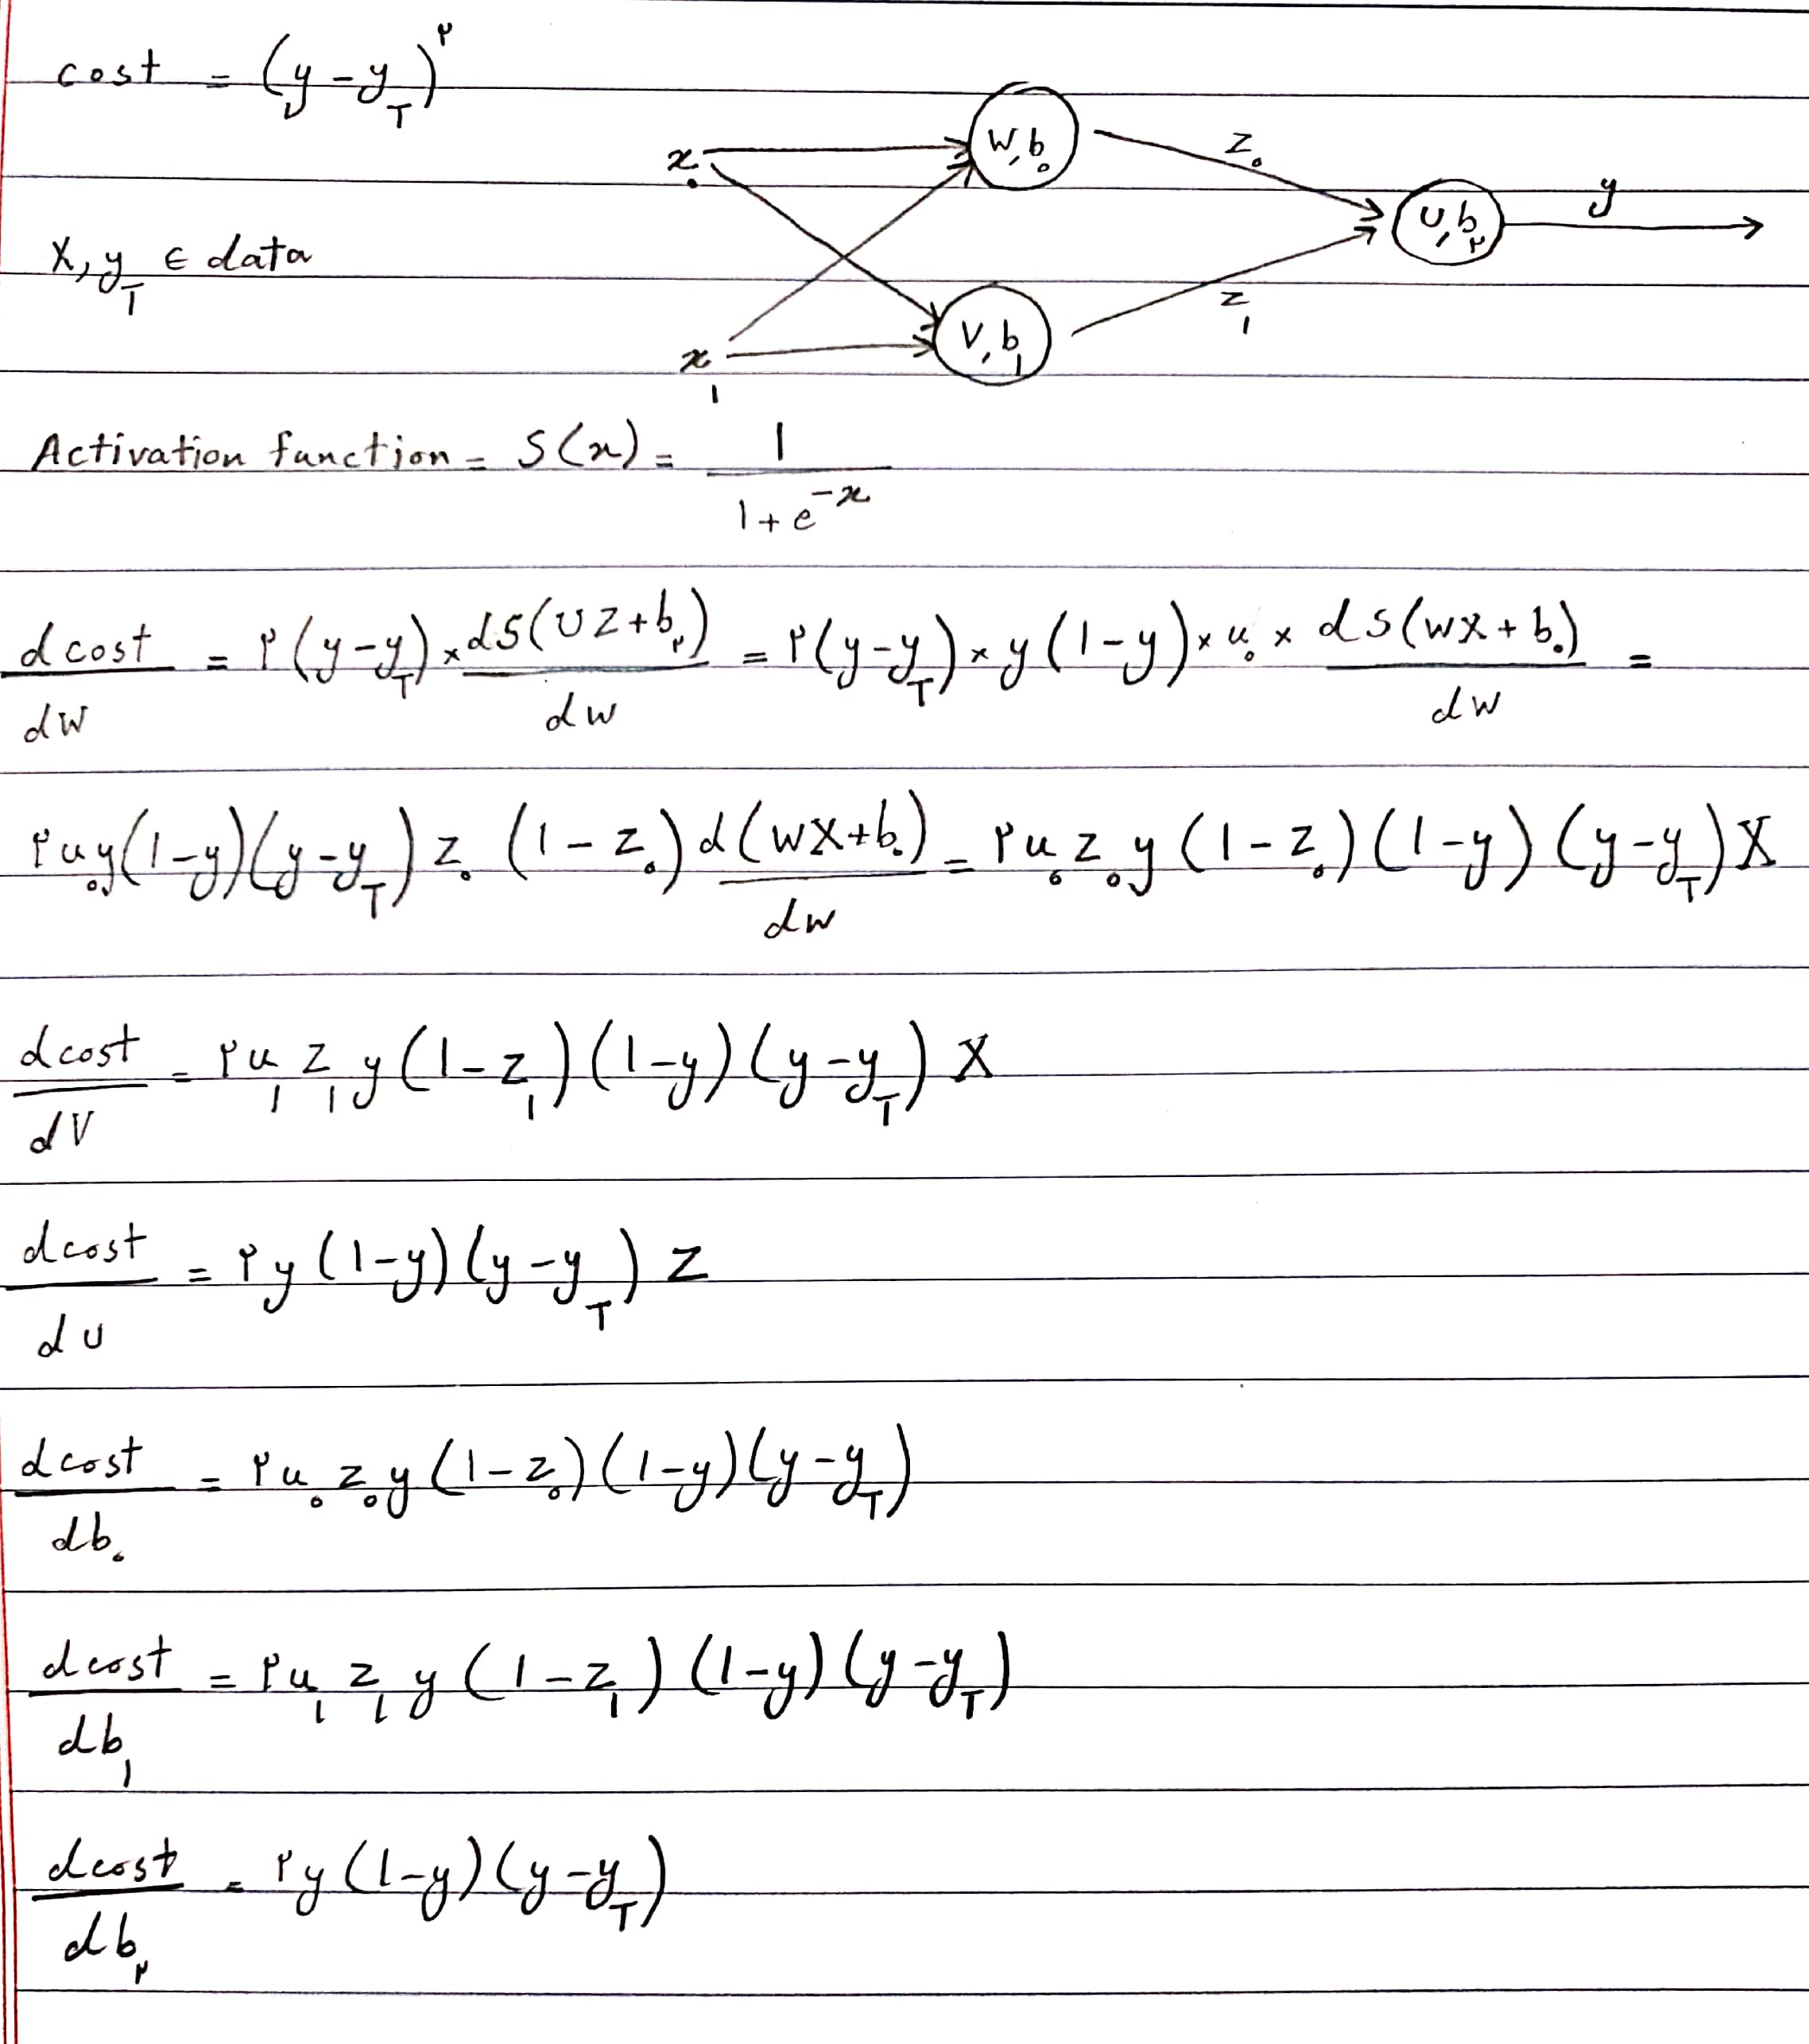 cost = (y - y_T)^۲
x₀ W, b₀ z₀ U, b_۲ y
X, y_T ∈ data
x₁ V, b₁ z₁
Activation function = S(x) = 1 / (1 + e^-x)
dcost/dW = ۲(y - y_T) × dS(UZ + b_۲)/dw = ۲(y - y_T) × y(1 - y) × u₀ × dS(WX + b₀)/dw =
۲u₀y(1 - y)(y - y_T) z₀ (1 - z₀) d(WX + b₀)/dw = ۲u₀z₀y(1 - z₀)(1 - y)(y - y_T)X
dcost/dV = ۲u₁z₁y(1 - z₁)(1 - y)(y - y_T)X
dcost/dU = ۲y(1 - y)(y - y_T)Z
dcost/db₀ = ۲u₀z₀y(1 - z₀)(1 - y)(y - y_T)
dcost/db₁ = ۲u₁z₁y(1 - z₁)(1 - y)(y - y_T)
dcost/db_۲ = ۲y(1 - y)(y - y_T)